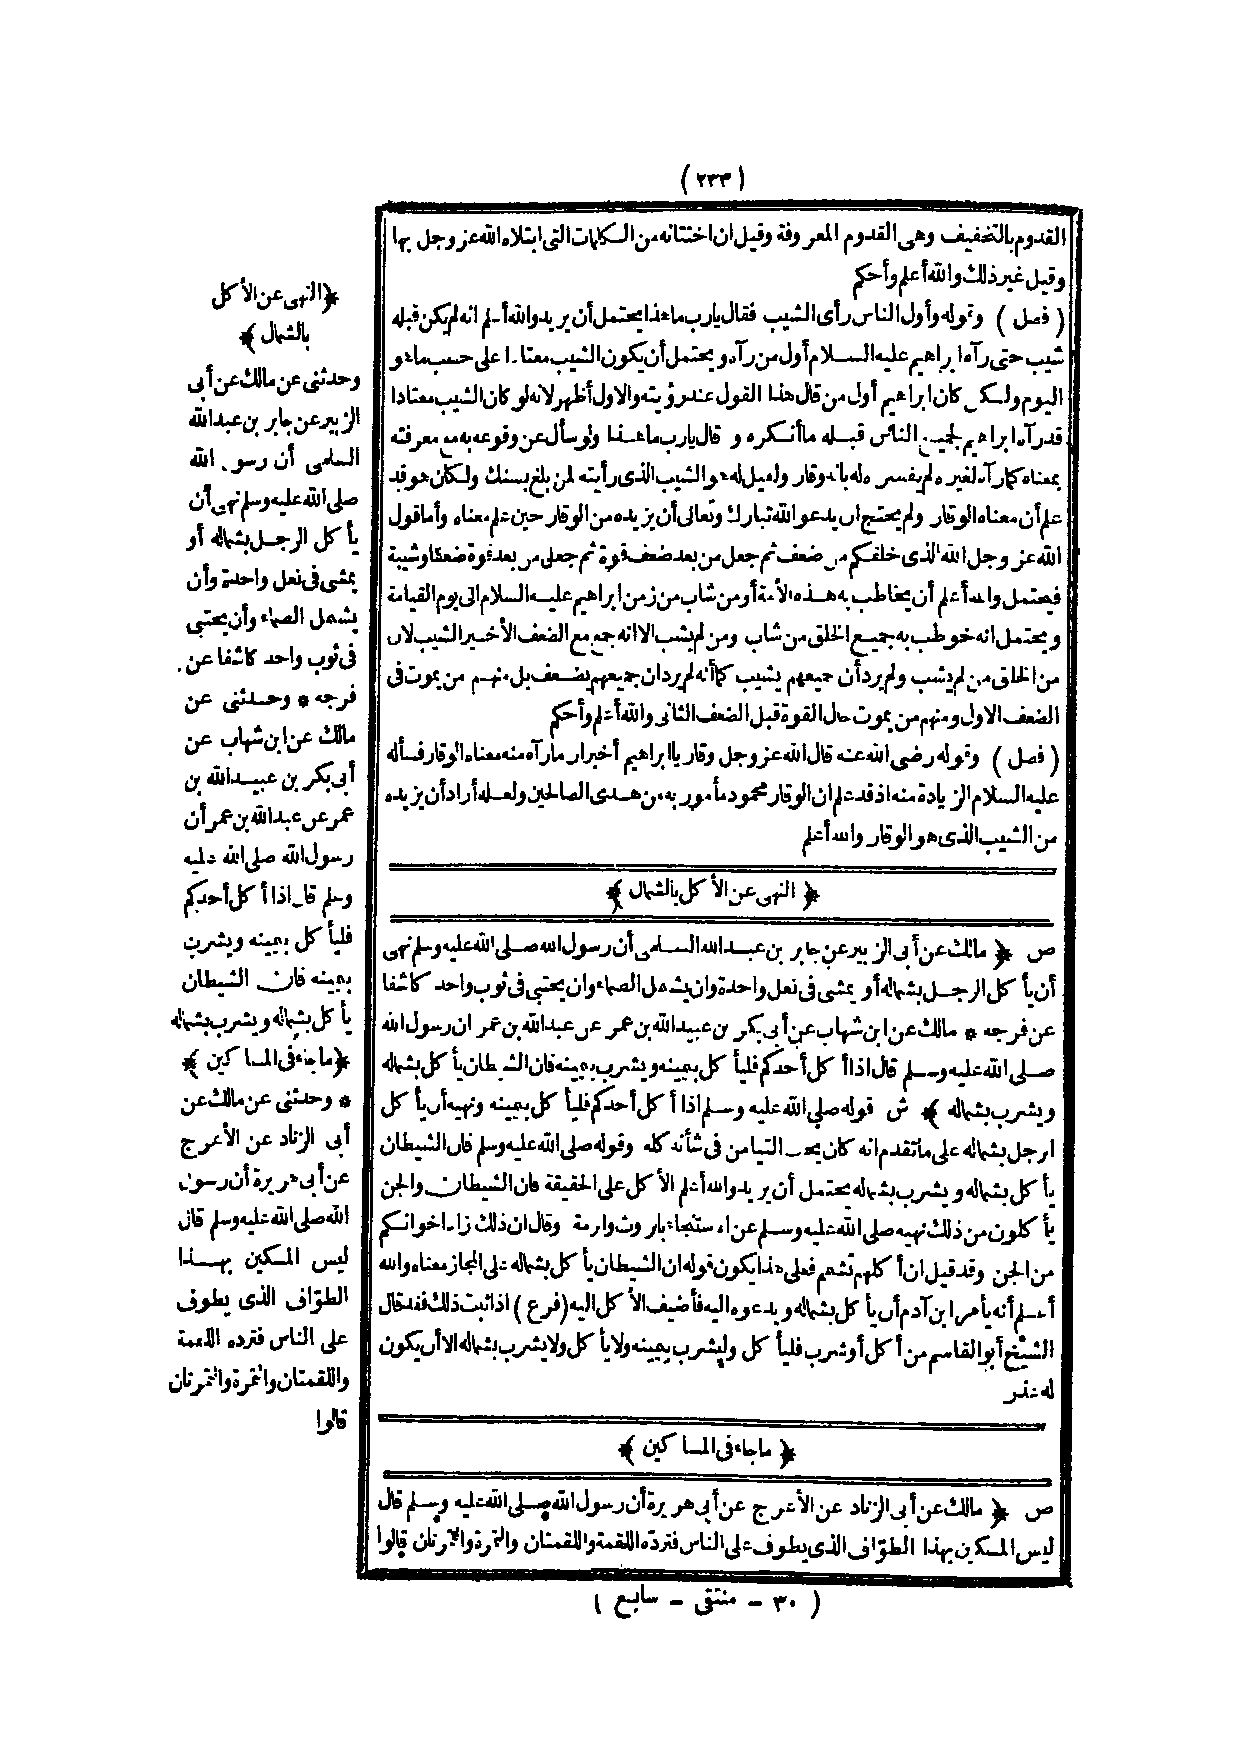 (٢٣٣)
القدوم بالتخفيف وهى القدوم المعروفة وقيل ان اختتانه من الكلمات التى ابتلاه الله عز وجل بها
وقيل غير ذلك والله أعلم وأحكم
( فصل ) وقوله وأول الناس رأى الشيب فقال يارب ما هذا يحتمل أن يريد والله أعلم انه لم يكن قبله
شيب حتى رآه ابراهيم عليه السلام أول من رآه ويحتمل أن يكون الشيب معتادا على حسب ما هو
اليوم ولكن كان ابراهيم أول من قال هذا القول عند رؤيته والاول أظهر لانه لو كان الشيب معتادا
قد رآه ابراهيم لجميع الناس قبله ما أنكره و قال يارب ما هذا ولو سأل عن وقوعه به مع معرفته
بمعناه كما رآه لغيره لم يفسر له بانه وقار ولقيل له هو الشيب الذى رأيته لمن بلغ بسنك ولكان هو قد
علم أن معناه الوقار ولم يحتج ان يدعو الله تبارك وتعالى أن يزيده من الوقار حين علم معناه وأما قول
الله عز وجل الله الذى خلقكم من ضعف ثم جعل من بعد ضعف قوة ثم جعل من بعد قوة ضعفا وشيبة
فيحتمل والله أعلم أن يخاطب به هذه الأمة أو من شاب من زمن ابراهيم عليه السلام الى يوم القيامة
ويحتمل انه خوطب به جميع الخلق من شاب ومن لم يشب الا انه جمع مع الضعف الأخير الشيب لان
من الخلق من لم يشب ولم يرد أن جميعهم يشيب كما أنه لم يرد ان جميعهم يضعف بل منهم من يموت فى
الضعف الاول ومنهم من يموت حال القوة قبل الضعف الثانى والله أعلم وأحكم
( فصل ) وقوله رضى الله عنه قال الله عز وجل وقار يا ابراهيم أخبر ان ما رآه منه معناه الوقار فسأله
عليه السلام الزيادة منه اذ قد علم ان الوقار محمود مأمور به من هدى الصالحين ولعله أراد أن يزيده
من الشيب الذى هو الوقار والله أعلم
﴿ النهى عن الأكل بالشمال ﴾
ص ﴿ مالك عن أبى الزبير عن جابر بن عبد الله السلمى أن رسول الله صلى الله عليه وسلم نهى
أن يأكل الرجل بشماله أو يمشى فى نعل واحدة وان يشتمل الصماء وان يحتبى فى ثوب واحد كاشفا
عن فرجه * مالك عن ابن شهاب عن أبى بكر بن عبيد الله بن عمر عن عبد الله بن عمر ان رسول الله
صلى الله عليه وسلم قال اذا أكل أحدكم فليأكل بيمينه ويشرب بيمينه فان الشيطان يأكل بشماله
ويشرب بشماله ﴾ ش قوله صلى الله عليه وسلم اذا أكل أحدكم فليأكل بيمينه ونهيه أن يأكل
الرجل بشماله على ما تقدم انه كان يحب التيامن فى شأنه كله وقوله صلى الله عليه وسلم فان الشيطان
يأكل بشماله ويشرب بشماله يحتمل أن يريد والله أعلم الأكل على الحقيقة فان الشيطان والجن
يأكلون من ذلك نهيه صلى الله عليه وسلم عن الاستنجاء بالروث والرمة وقال ان ذلك زاد اخوانكم
من الجن وقد قيل ان أكلهم تشمم فعلى هذا يكون قوله ان الشيطان يأكل بشماله على المجاز معناه والله
أعلم أنه يأمر ابن آدم أن يأكل بشماله ويدعوه اليه فأضيف الأكل اليه (فرع) اذا ثبت ذلك فقد قال
الشيخ أبو القاسم من أكل أو شرب فليأكل وليشرب بيمينه ولا يأكل ولا يشرب بشماله الا أن يكون
له عذر
﴿ ما جاء فى المساكين ﴾
ص ﴿ مالك عن أبى الزناد عن الأعرج عن أبى هريرة أن رسول الله صلى الله عليه وسلم قال
ليس المسكين بهذا الطوّاف الذى يطوف على الناس فترده اللقمة واللقمتان والتمرة والتمرتان قالوا
( ٣٠ - منتقى - سابع )
﴿النهى عن الأكل
بالشمال ﴾
وحدثنى عن مالك عن أبى
الزبير عن جابر بن عبد الله
السلمى أن رسول الله
صلى الله عليه وسلم نهى أن
يأكل الرجل بشماله أو
يمشى فى نعل واحدة وأن
يشتمل الصماء وأن يحتبى
فى ثوب واحد كاشفا عن
فرجه * وحدثنى عن
مالك عن ابن شهاب عن
أبى بكر بن عبيد الله بن
عمر عن عبد الله بن عمر أن
رسول الله صلى الله عليه
وسلم قال اذا أكل أحدكم
فليأكل بيمينه ويشرب
بيمينه فان الشيطان
يأكل بشماله ويشرب بشماله
﴿ما جاء فى المساكين ﴾
* وحدثنى عن مالك عن
أبى الزناد عن الأعرج
عن أبى هريرة أن رسول
الله صلى الله عليه وسلم قال
ليس المسكين بهذا
الطوّاف الذى يطوف
على الناس فترده اللقمة
واللقمتان والتمرة والتمرتان
قالوا